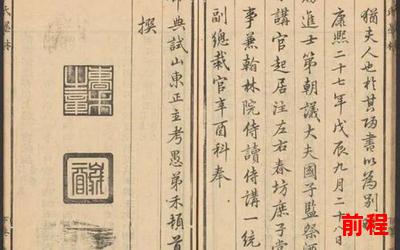 猶夫人也於其書以為別
康熙二十七年戊辰九月二十八
進士第朝議大夫國子監祭酒
講官起居注左右春坊庶子
事兼翰林院侍讀侍講一統
副總裁官辛酉科奉
典試山東正主考愚弟禾頓首
撰
前程